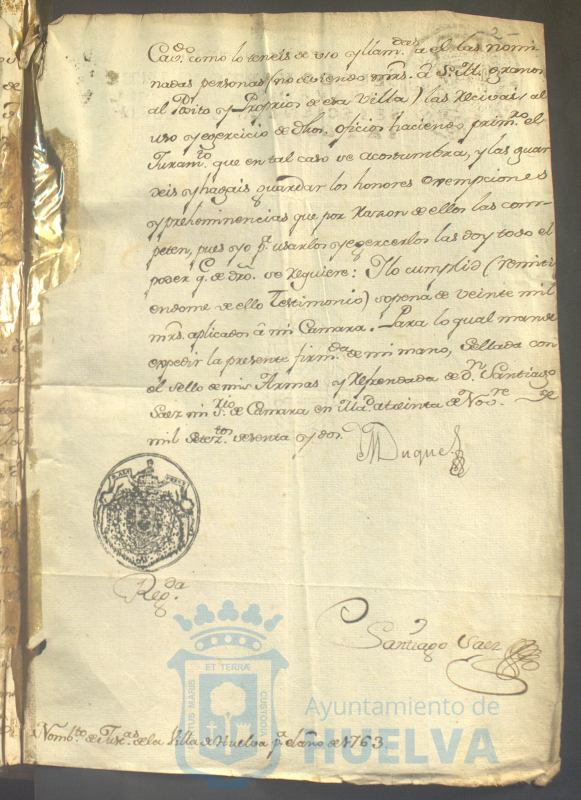 -2-
Cavdo como lo teneis de uso y llamdas a el las nomi-
nadas personas (no deviendo mrs. a S. M. granos
al Posito y Proprios de esa Villa) las recivais al
uso y egercicio de dhos. oficios haciendo primro el
Juramto que en tal caso se acostumbra, y las guar
deis y hagais guardar los honores exempciones
y preheminencias que por razon de ellos las com-
peten, pues yo pa. usarlos y egercerlos las doy todo el
poder q. de dro. se requiere: Y lo cumplid (remiti
endome de ello Testimonio) sopena de veinte mil
mrs. aplicados a mi Camara. Para lo qual mandé
expedir la presente firmda de mi mano, Sellada con
el sello de mis Armas y Refrendada de Dn Santiago
Saez mi Srio de Camara en Madd. a treinta de Nove. de
mil seteztos sesenta y dos.
El Duque
Regda
Santiago Saez
Nombto de Juzas de la Villa de Huelva pa. el año de 1763.
ET TERRÆ
CUSTODIA
PORTUS MARIS
Ayuntamiento de
HUELVA